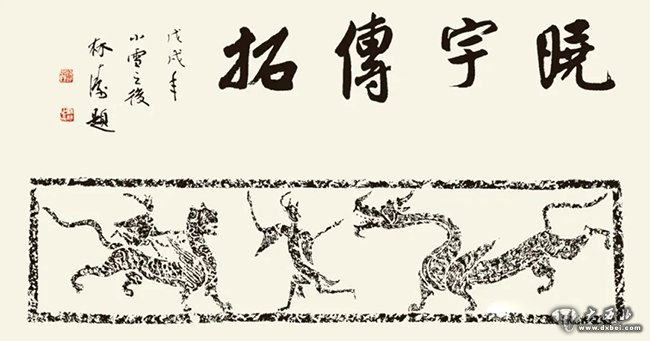 曉宇傳拓
戊戌年
小雪之後
大西北
www.dxbei.com